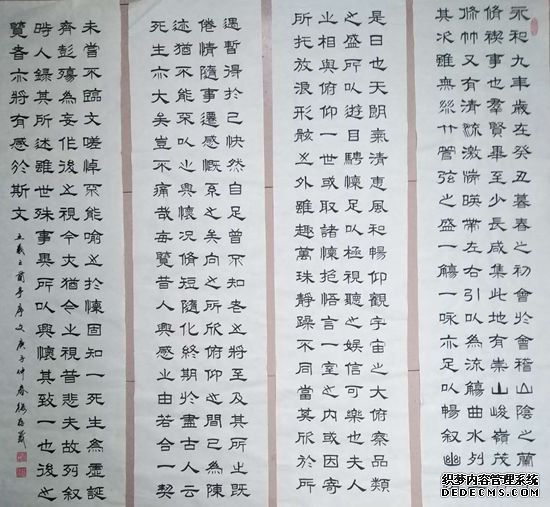 永和九年歲在癸丑暮春之初會於會稽山陰之蘭
脩禊事也羣賢畢至少長咸集此地有崇山峻嶺茂
脩竹又有清流激湍暎帶左右引以為流觴曲水列
其次雖無絲竹管弦之盛一觴一詠亦足以暢敘幽
是日也天朗氣清惠風和暢仰觀宇宙之大俯察品類
之盛所以遊目騁懷足以極視聽之娛信可樂也夫人
之相與俯仰一世或取諸懷抱悟言一室之內或因寄
所托放浪形骸之外雖趣萬殊靜躁不同當其欣於所
遇暫得於己快然自足曾不知老之將至及其所之既
倦情隨事遷感慨系之矣向之所欣俯仰之間已為陳
迹猶不能不以之興懷況脩短隨化終期於盡古人云
死生亦大矣豈不痛哉每覽昔人興感之由若合一契
未嘗不臨文嗟悼不能喻之於懷固知一死生為虛誕
齊彭殤為妄作後之視今亦猶今之視昔悲夫故列敘
時人錄其所述雖世殊事異所以興懷其致一也後之
覽者亦將有感於斯文 王羲之蘭亭序文庚子仲春楊
织梦内容管理系统
DEDECMS.COM